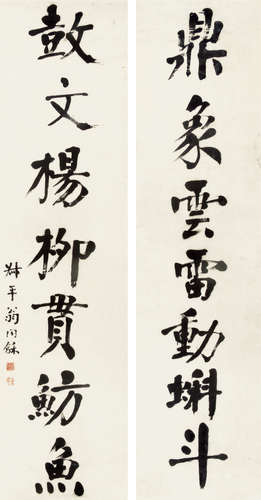 鼎象雲雷動蝌斗
鼓文楊柳貫魴魚
叔平翁同龢